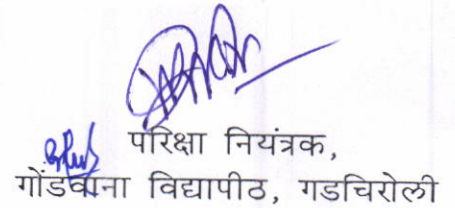 परिक्षा नियंत्रक,
गोंडवाना विद्यापीठ, गडचिरोली